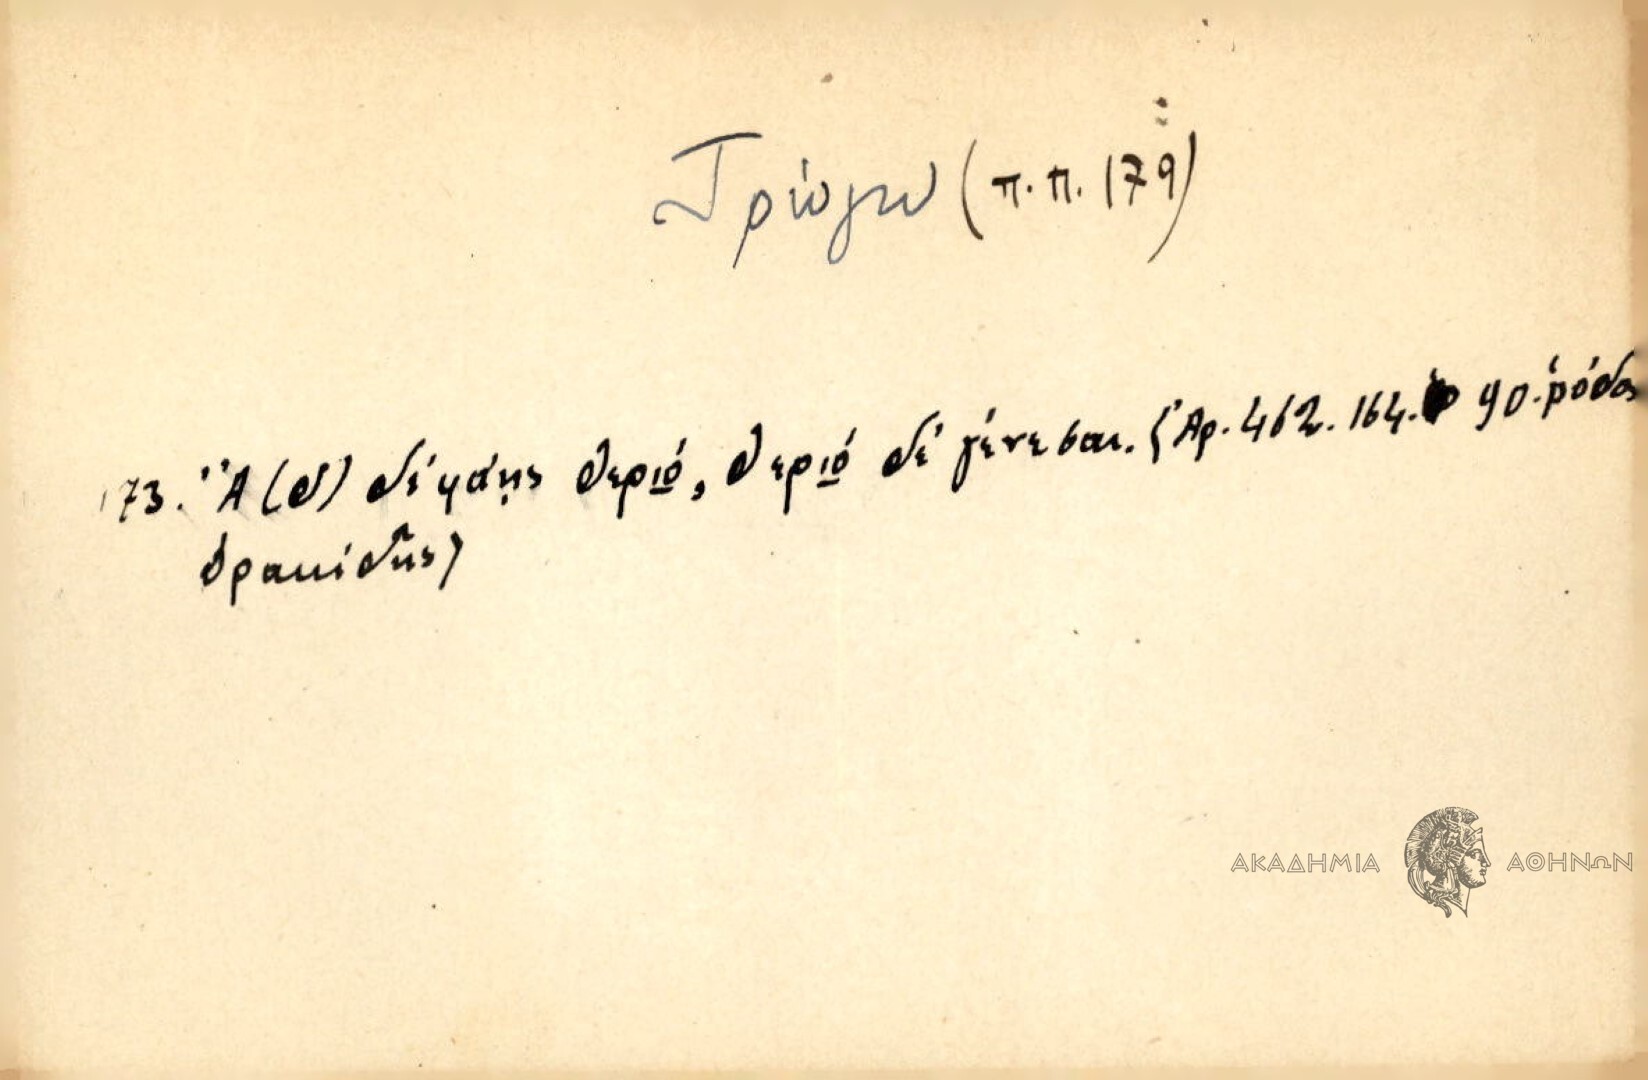 Τρώγω (π.π. 179)
173. Ἄ(δ) δέ φάῃς θεριό, θεριό δέ γένεσαι. (Ἀρ. 462. 164. 90. Ῥόδος
Δρακίδης)
ΑΚΑΔΗΜΙΑ ΑΘΗΝΩΝ